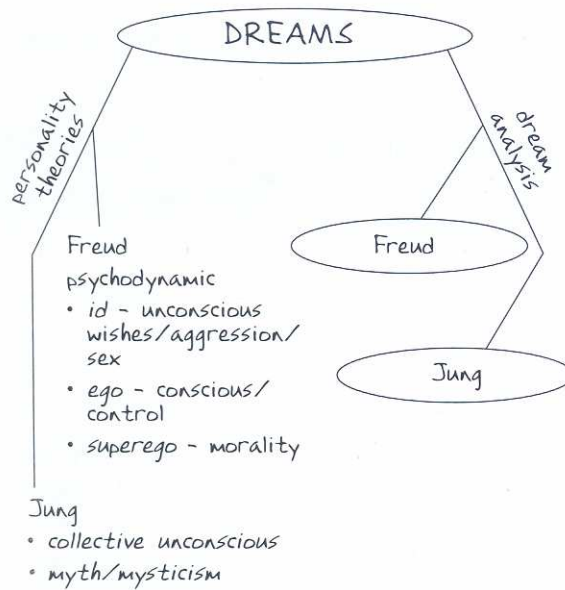 DREAMS
personality
theories
dream
analysis
Freud
psychodynamic
• id - unconscious
wishes/aggression/
sex
• ego - conscious/
control
• superego - morality
Freud
Jung
Jung
• collective unconscious
• myth/mysticism